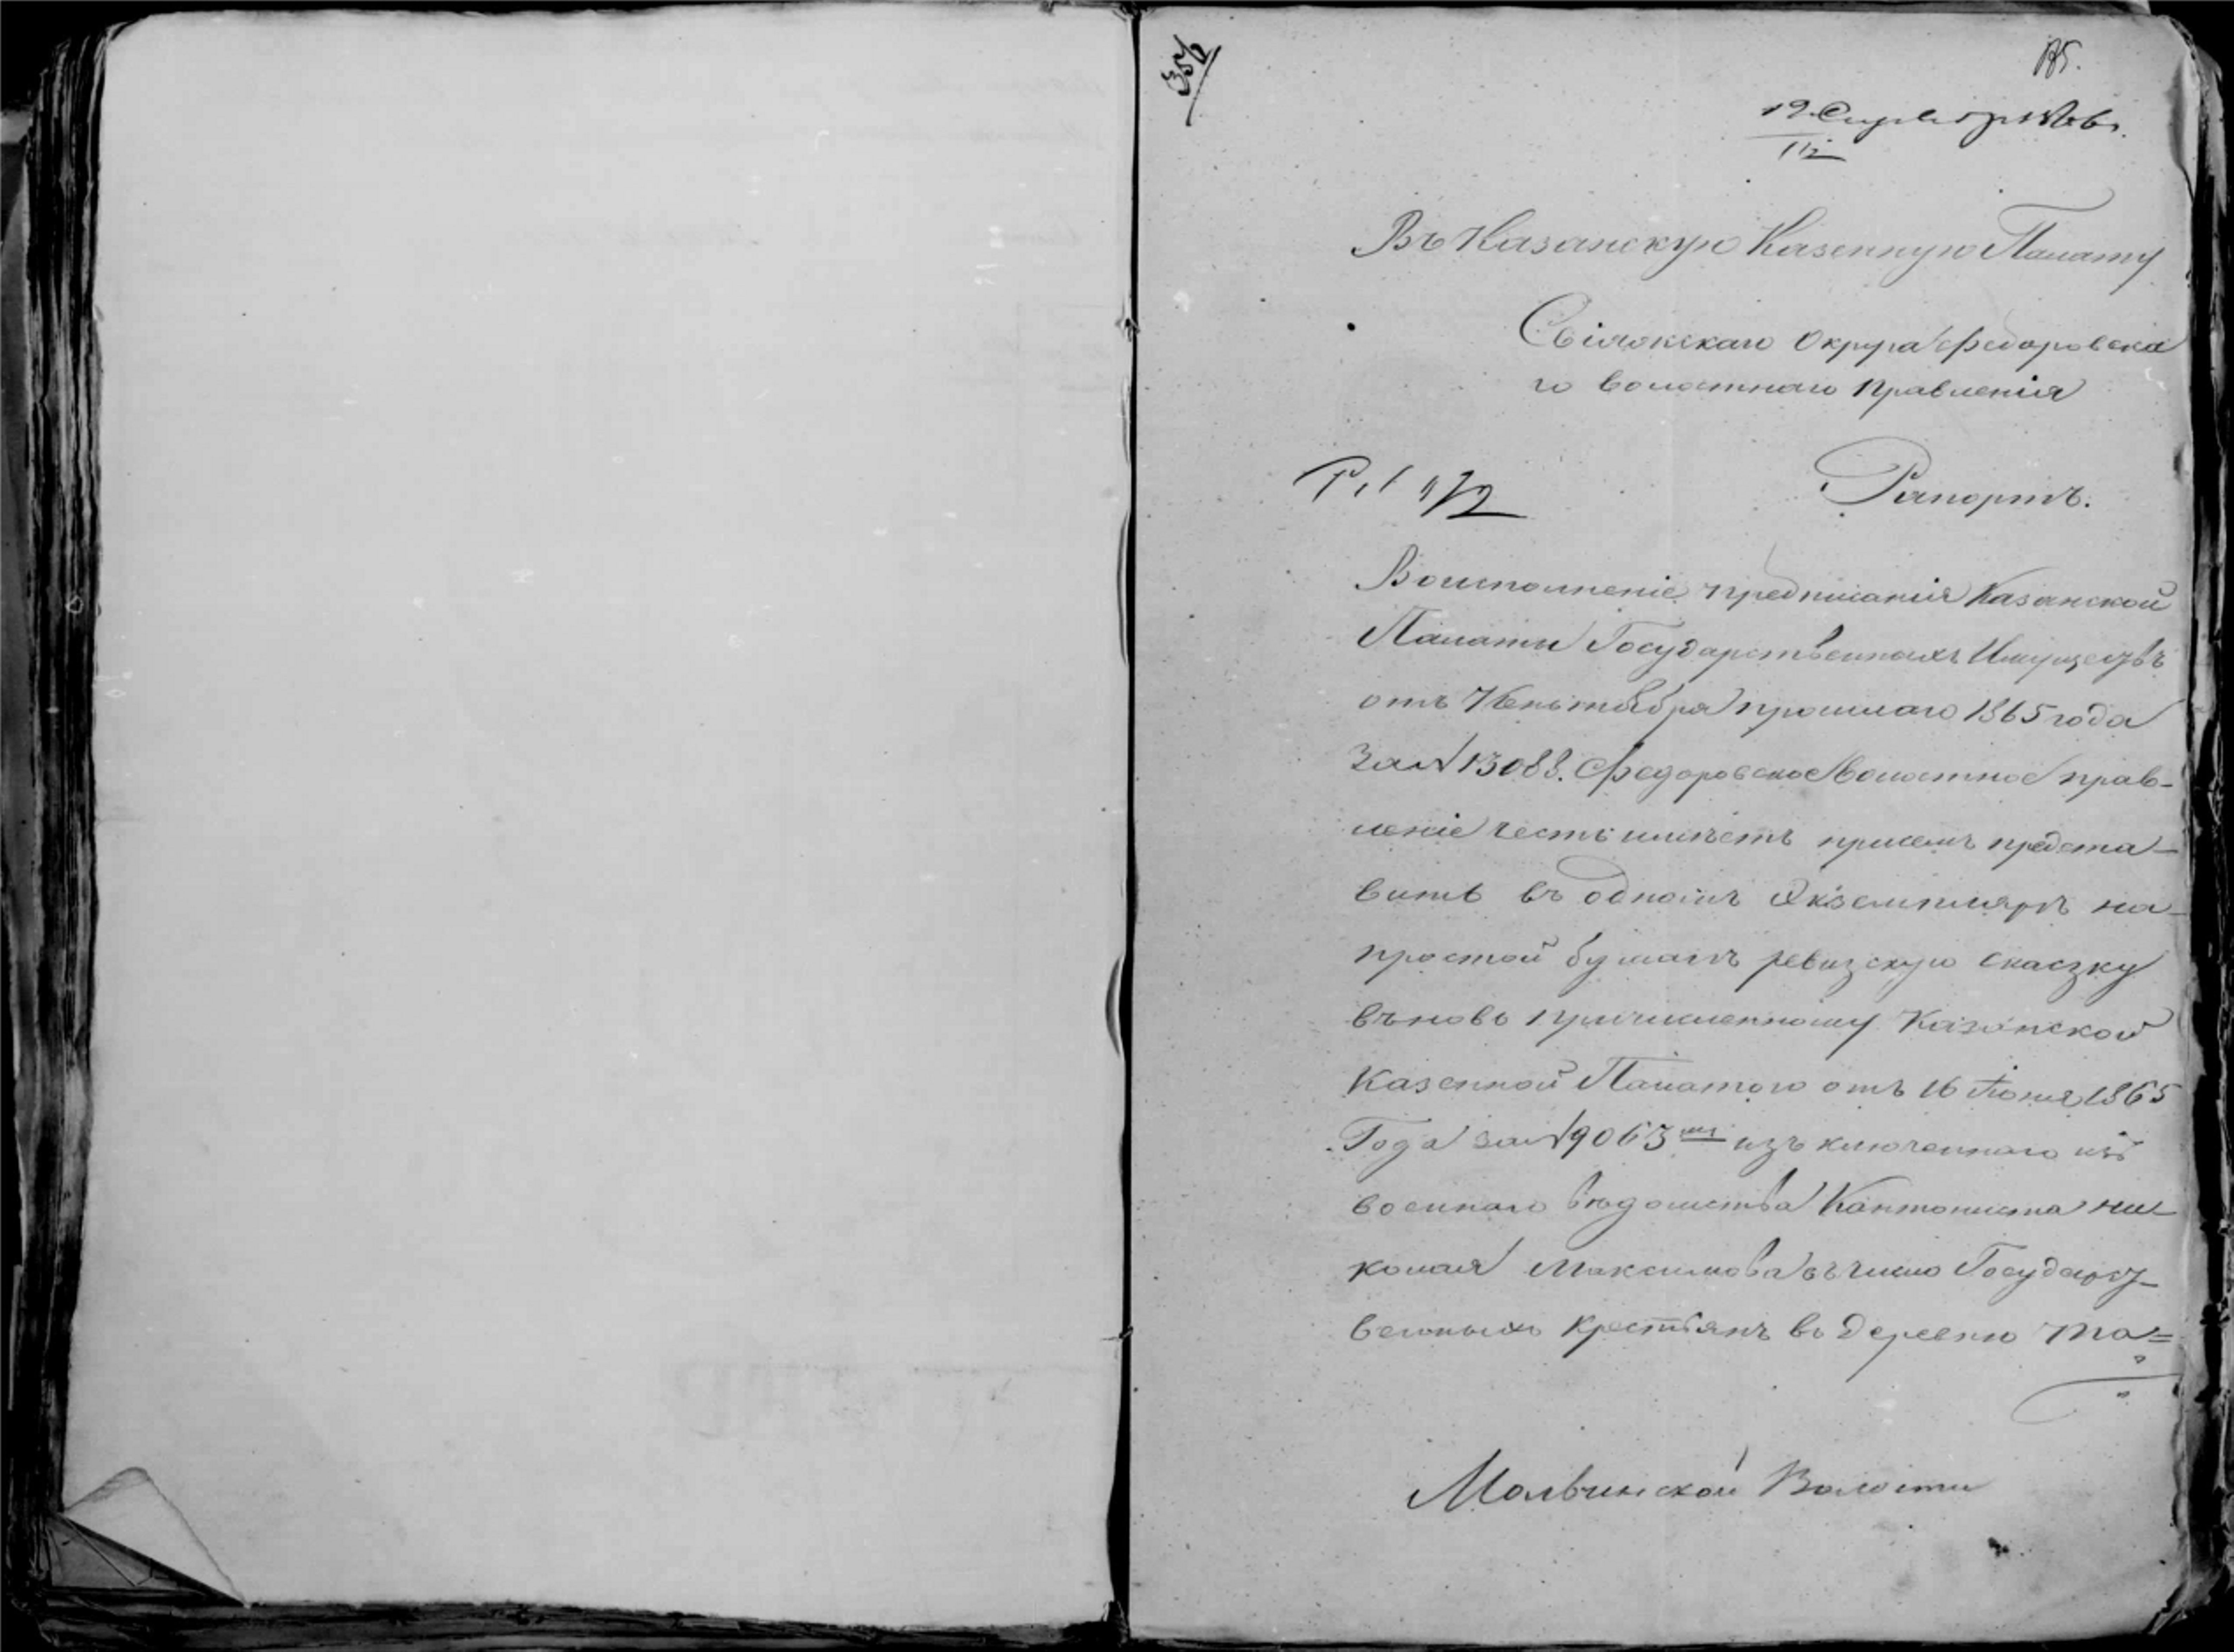 356
185.
19 1866.
Въ Казанскую Казенную Палату
Свіяжскаго Округа Федоровска
го волостнаго Правленія
Рапортъ.
Воисполненіе предписанія Казанской
Палаты Государственныхъ Имуществъ
отъ прошлаго 1865 года
за № 13088. Федоровское Волостное прав-
леніе честь имѣетъ присемъ предста-
вить въ одномъ экземплярѣ на-
простой бумагѣ ревизскую скаску
въновь причисленному Казанской
Казенной Палатою отъ 16 Іюня 1865
Года за № 9063 изъ ключеннаго изъ
военнаго вѣдомства Кантониста Ни-
колая Максимова въ число Государст-
венныхъ Крестьянъ въ деревню Та=
Молвинской Волости